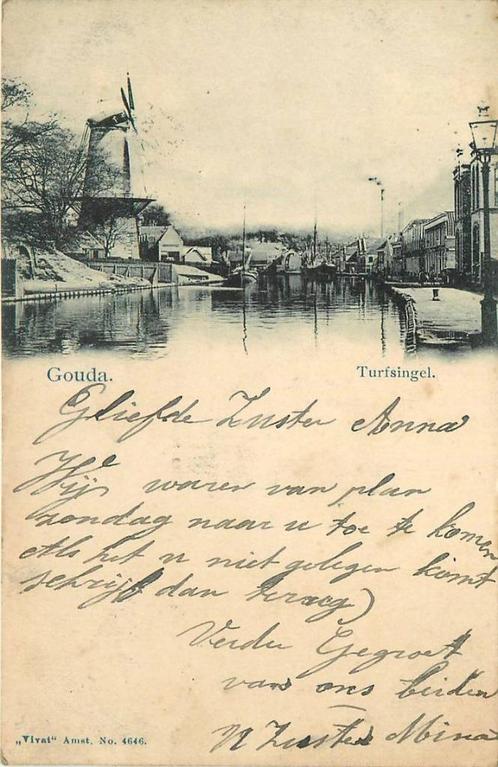 Gouda.
Turfsingel.
Geliefde Zuster Anna
Wij waren van plan
zondag naar u toe te komen
Als het u niet gelegen komt
schrijf dan terug)
Verder Gegroet
van ons beiden
U Zuster Mina
„Vivat" Amst. No. 4646.